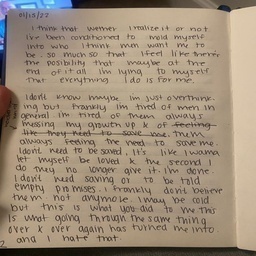 01/13/22
I think that wether I realize it or not
I've been conditioned to mold myself
into who I think men want me to
be. So much so that I feel like there's
the posibility that maybe at the
end of it all im lying to myself
that everything I do is for me.
I don't know maybe im just overthink-
ing but frankly im tired of men in
general im tired of them always
messing my growth up & of feeling
like they need to save me. them
always feeling the need to save me.
I dont need to be saved, it's like I wanna
let myself be loved & the second I
do they no longer give it. Im done.
I don't need saving or to be told
empty promises. I frankly dont believe
them not anymore. I may be cold
but this is what you did to me this
is what going through the same thing
over & over again has turned me into.
and I hate that.